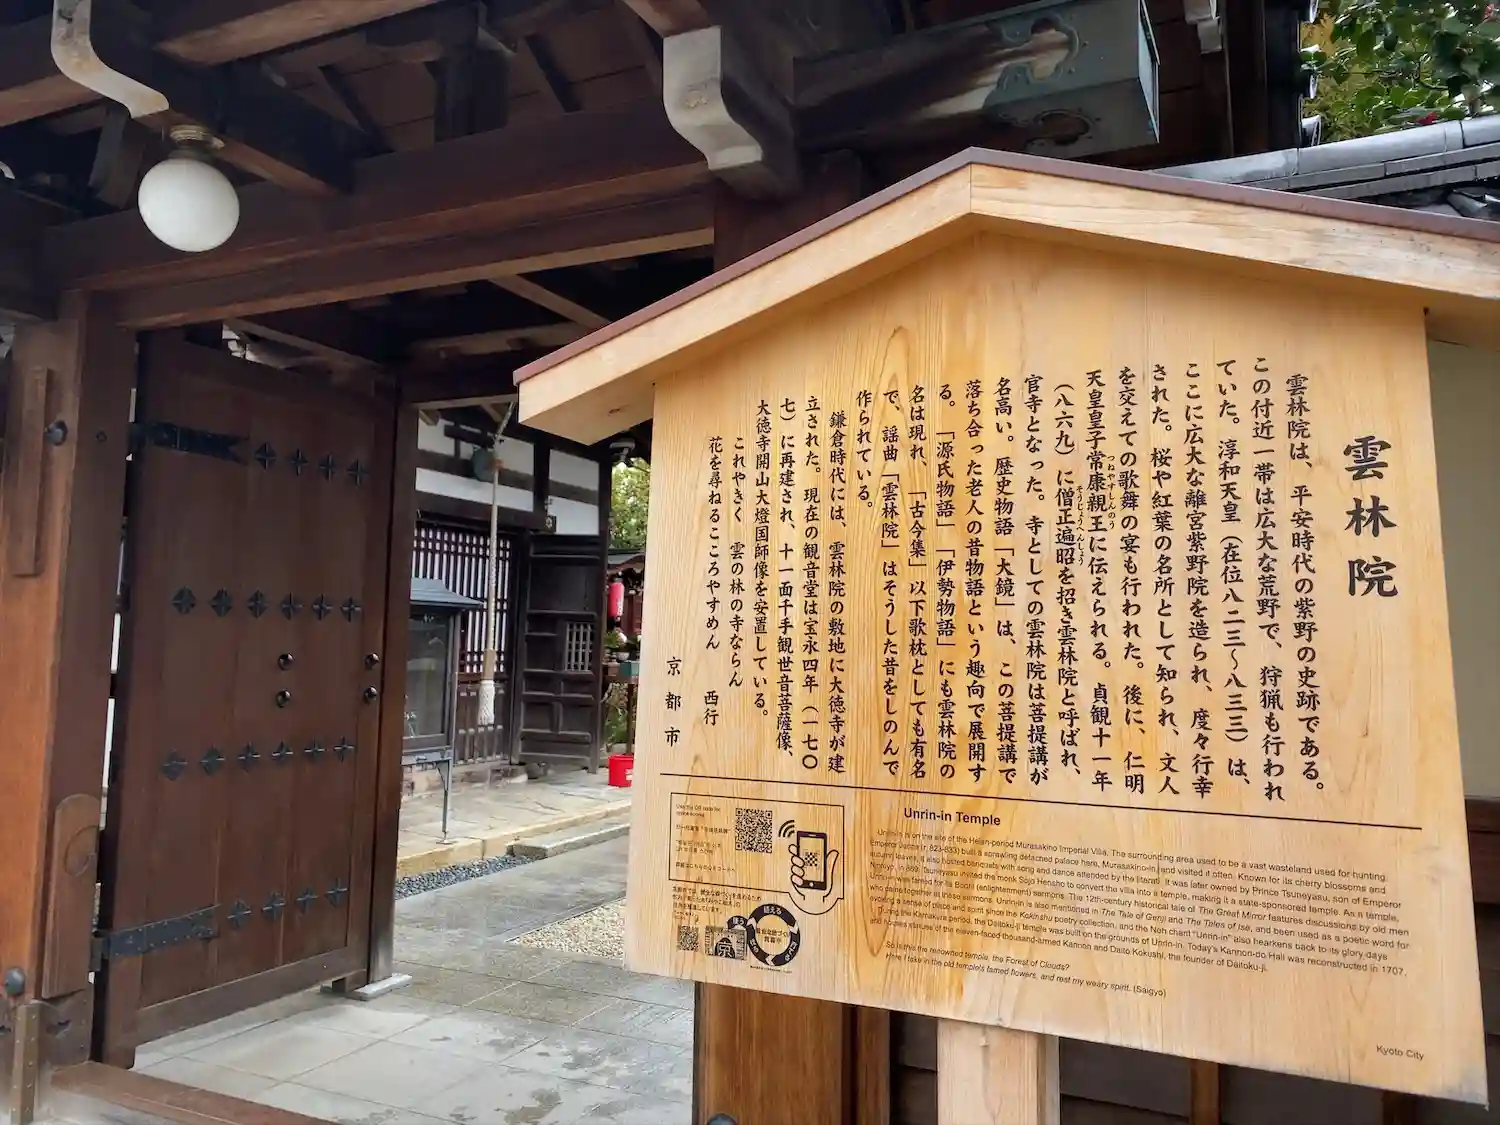 雲林院
雲林院は、平安時代の紫野の史跡である。
この付近一帯は広大な荒野で、狩猟も行われ
ていた。淳和天皇(在位八二三〜八三三)は、
ここに広大な離宮紫野院を造られ、度々行幸
された。桜や紅葉の名所として知られ、文人
を交えての歌舞の宴も行われた。後に、仁明
天皇皇子常康親王に伝えられる。貞観十一年
つねやすしんのう
(八六九)に僧正遍昭を招き雲林院と呼ばれ、
そうじょうへんじょう
官寺となった。寺としての雲林院は菩提講が
名高い。歴史物語「大鏡」は、この菩提講で
落ち合った老人の昔物語という趣向で展開す
る。「源氏物語」「伊勢物語」にも雲林院の
名は現れ、「古今集」以下歌枕としても有名
で、謡曲「雲林院」はそうした昔をしのんで
作られている。
鎌倉時代には、雲林院の敷地に大徳寺が建
立された。現在の観音堂は宝永四年(一七〇
七)に再建され、十一面千手観世音菩薩像、
大徳寺開山大燈国師像を安置している。
これやきく 雲の林の寺ならん
花を尋ねるこころやすめん 西行
京都市
Unrin-in Temple
Unrin-in is on the site of the Heian-period Murasakino Imperial Villa. The surrounding area used to be a vast wasteland used for hunting.
Emperor Junna (r. 823-833) built a sprawling detached palace here, Murasakino-in, and visited it often. Known for its cherry blossoms and
autumn leaves, it also hosted banquets with song and dance attended by the literati. It was later owned by Prince Tsuneyasu, son of Emperor
Ninmyo. In 869, Tsuneyasu invited the monk Sojo Hensho to convert the villa into a temple, making it a state-sponsored temple. As a temple,
Unrin-in was famed for its Bodhi (enlightenment) sermons. The 12th-century historical tale of The Great Mirror features discussions by old men
who came together at these sermons. Unrin-in is also mentioned in The Tale of Genji and The Tales of Ise, and been used as a poetic word for
evoking a sense of place and spirit since the Kokinshu poetry collection, and the Noh chant "Unrin-in" also hearkens back to its glory days.
During the Kamakura period, the Daitoku-ji temple was built on the grounds of Unrin-in. Today's Kannon-do Hall was reconstructed in 1707,
and houses statues of the eleven-faced thousand-armed Kannon and Daito Kokushi, the founder of Daitoku-ji.
So is this the renowned temple, the Forest of Clouds?
Here I take in the old temple's famed flowers, and rest my weary spirit. (Saigyo)
Kyoto City